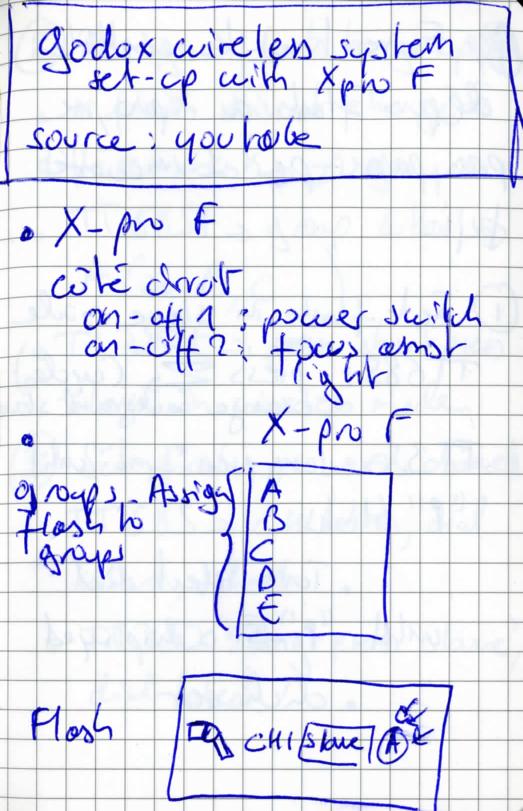 godox wireless system
set-cp with Xpro F
source : youtube
• X-pro F
côté droit
on-off 1 : power switch
on-off 2 : focus assist
light
• X-pro F
groups. Assign
flash to
groups
A
B
C
D
E
Flash
CH1 Slave A